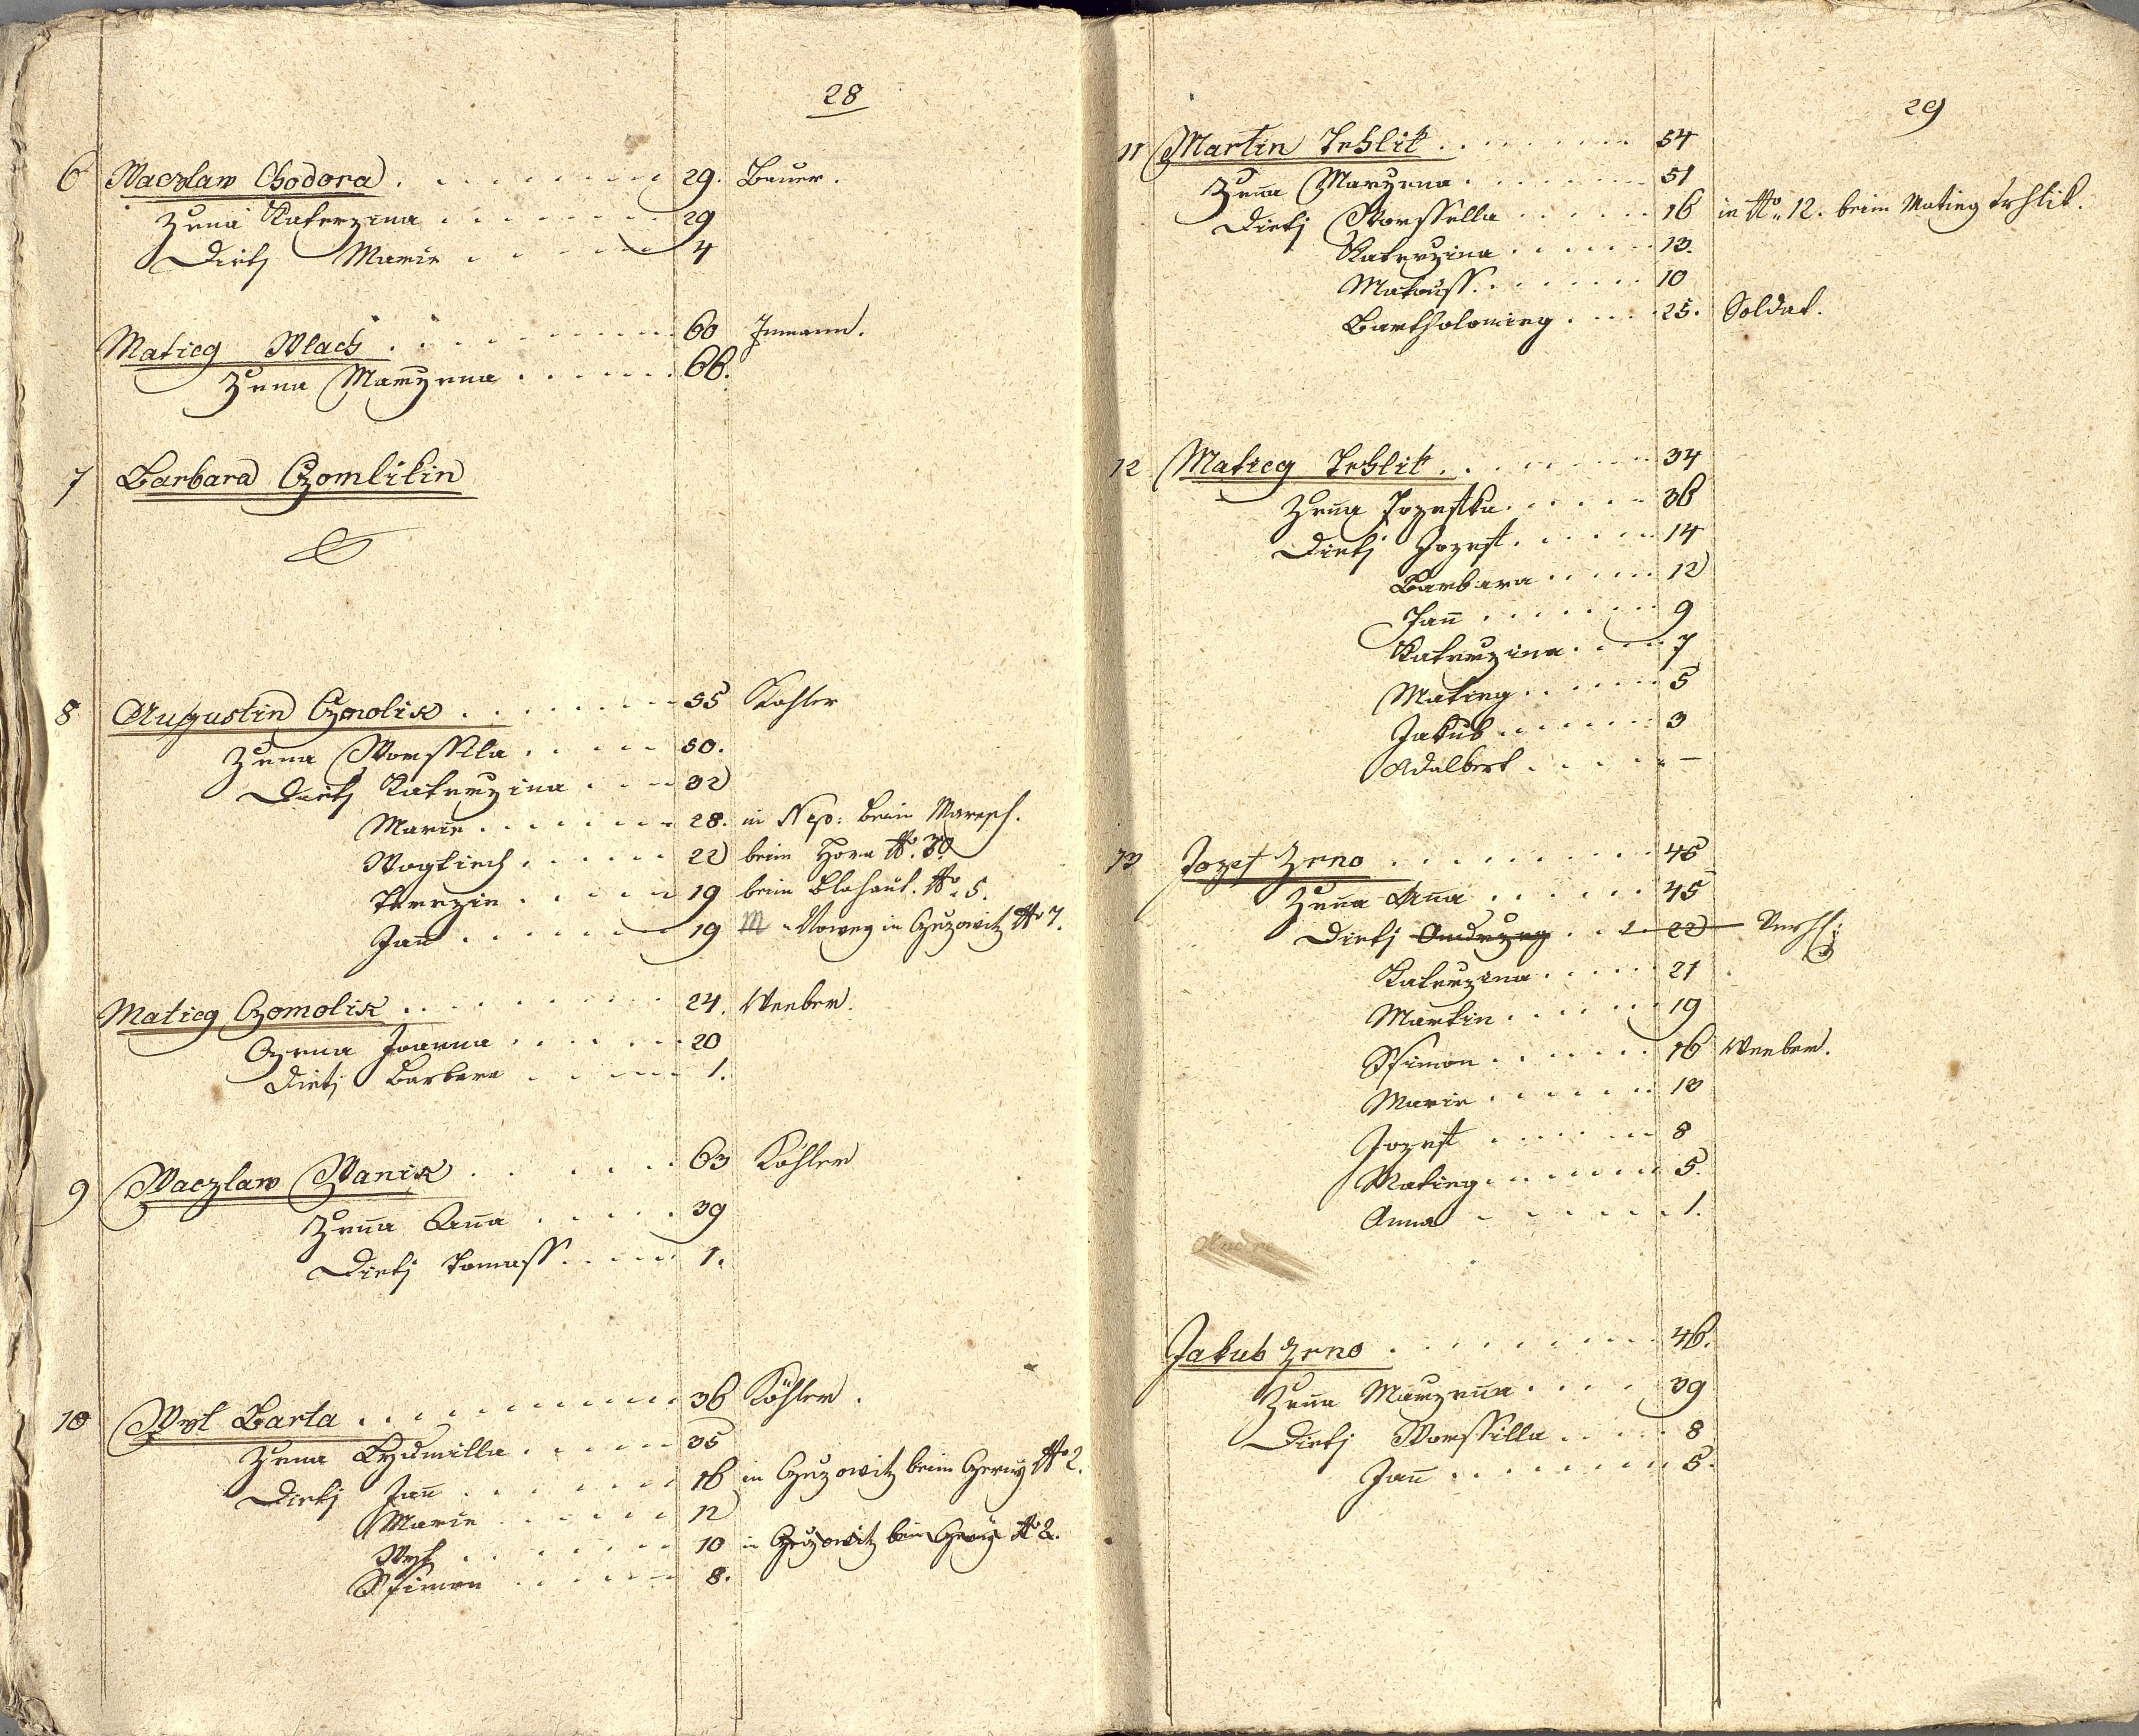 28
6 Waczlaw Chodora . . . . . . . . 29. Bauer.
Žena Katerzina . . . . . . 29
Dietj Marie . . . . . 4
Matieg Wlach . . . . . . . . 60 Inmann.
Žena Marzena . . . . . . 66.
7 Barbara Czomlikin
8 Augustin Czmolik . . . . . . . 55 Kohler
Žena Worssila . . . . . 50.
Dietj Katerzina . . . . 32
Marie . . . . . . . 28. in Nep: beim Maresch.
Wogtiech . . . . . . 22 beim Hora No. 30
Terezie . . . . . 19 beim Blahaut. No. 5.
Jan̄ . . . . . . 19 in Czuzowitz No 7.
Matieg Czomolik . . . . . . . . 24. Weeber.
Czena Joanna . . . . . . 20
Dietj Barbara . . . . . 1.
9 Waczlaw Wanik . . . . . . 63 Köhler
Žen̄a An̄a . . . . . 39
Dietj Tomass . . . . . 1.
10 Wyt Barta . . . . . . . . . 36 Köhler.
Žena Lydmilla . . . . . 35
Dietj Jan̄ . . . . . . 16 in Czuzowitz beim Czerny No 2.
Marie . . . . . . 12
Wyt . . . . . . . 10 in Czuzowitz beim Czerny No 2.
Ssimon . . . . . . 8.
29
11 Martin Trhlik . . . . . . . 54
Žen̄a Marzena . . . . . . 51
Dietj Worssella . . . . . 16 in No. 12. beim Matieg Trhlik.
Katerzina . . . . . 13.
Matauss . . . . . . . 10
Bartholomieg . . . . 25. Soldat.
12 Matieg Trhlik . . . . . . . 34
Žen̄a Jozefka . . . . . 36
Dietj Jozef . . . . . . 14
Barbara . . . . . 12
Jan̄ . . . . . . . 9
Katerzina . . . . 7
Matieg . . . . . . 5
Jakub . . . . . . 3
Adalbert . . . . . –
13 Jozef Zrno . . . . . . . . . 46
Žen̄a An̄a . . . . . . 45
Dietj Ondrzeg . . . . 22
Katerzina . . . . . 21
Martin . . . . . . 19
Ssimon . . . . . . . 16 Weeber.
Marie . . . . . . 13
Jozef . . . . . . 8
Matieg . . . . . . 5.
Anna . . . . . . 1.
Jakub Zrno . . . . . . . . . 46.
Žen̄a Marzen̄a . . . . 39
Dietj Worssilla . . . . 8
Jan̄ . . . . . . . . 5.